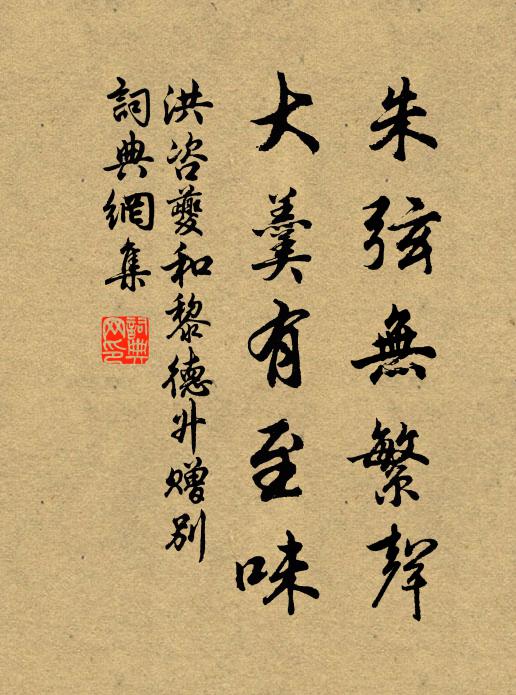 朱弦無繁聲
大羹有至味
洪咨夔和黎德升贈別
詞典網集
詞典
网印